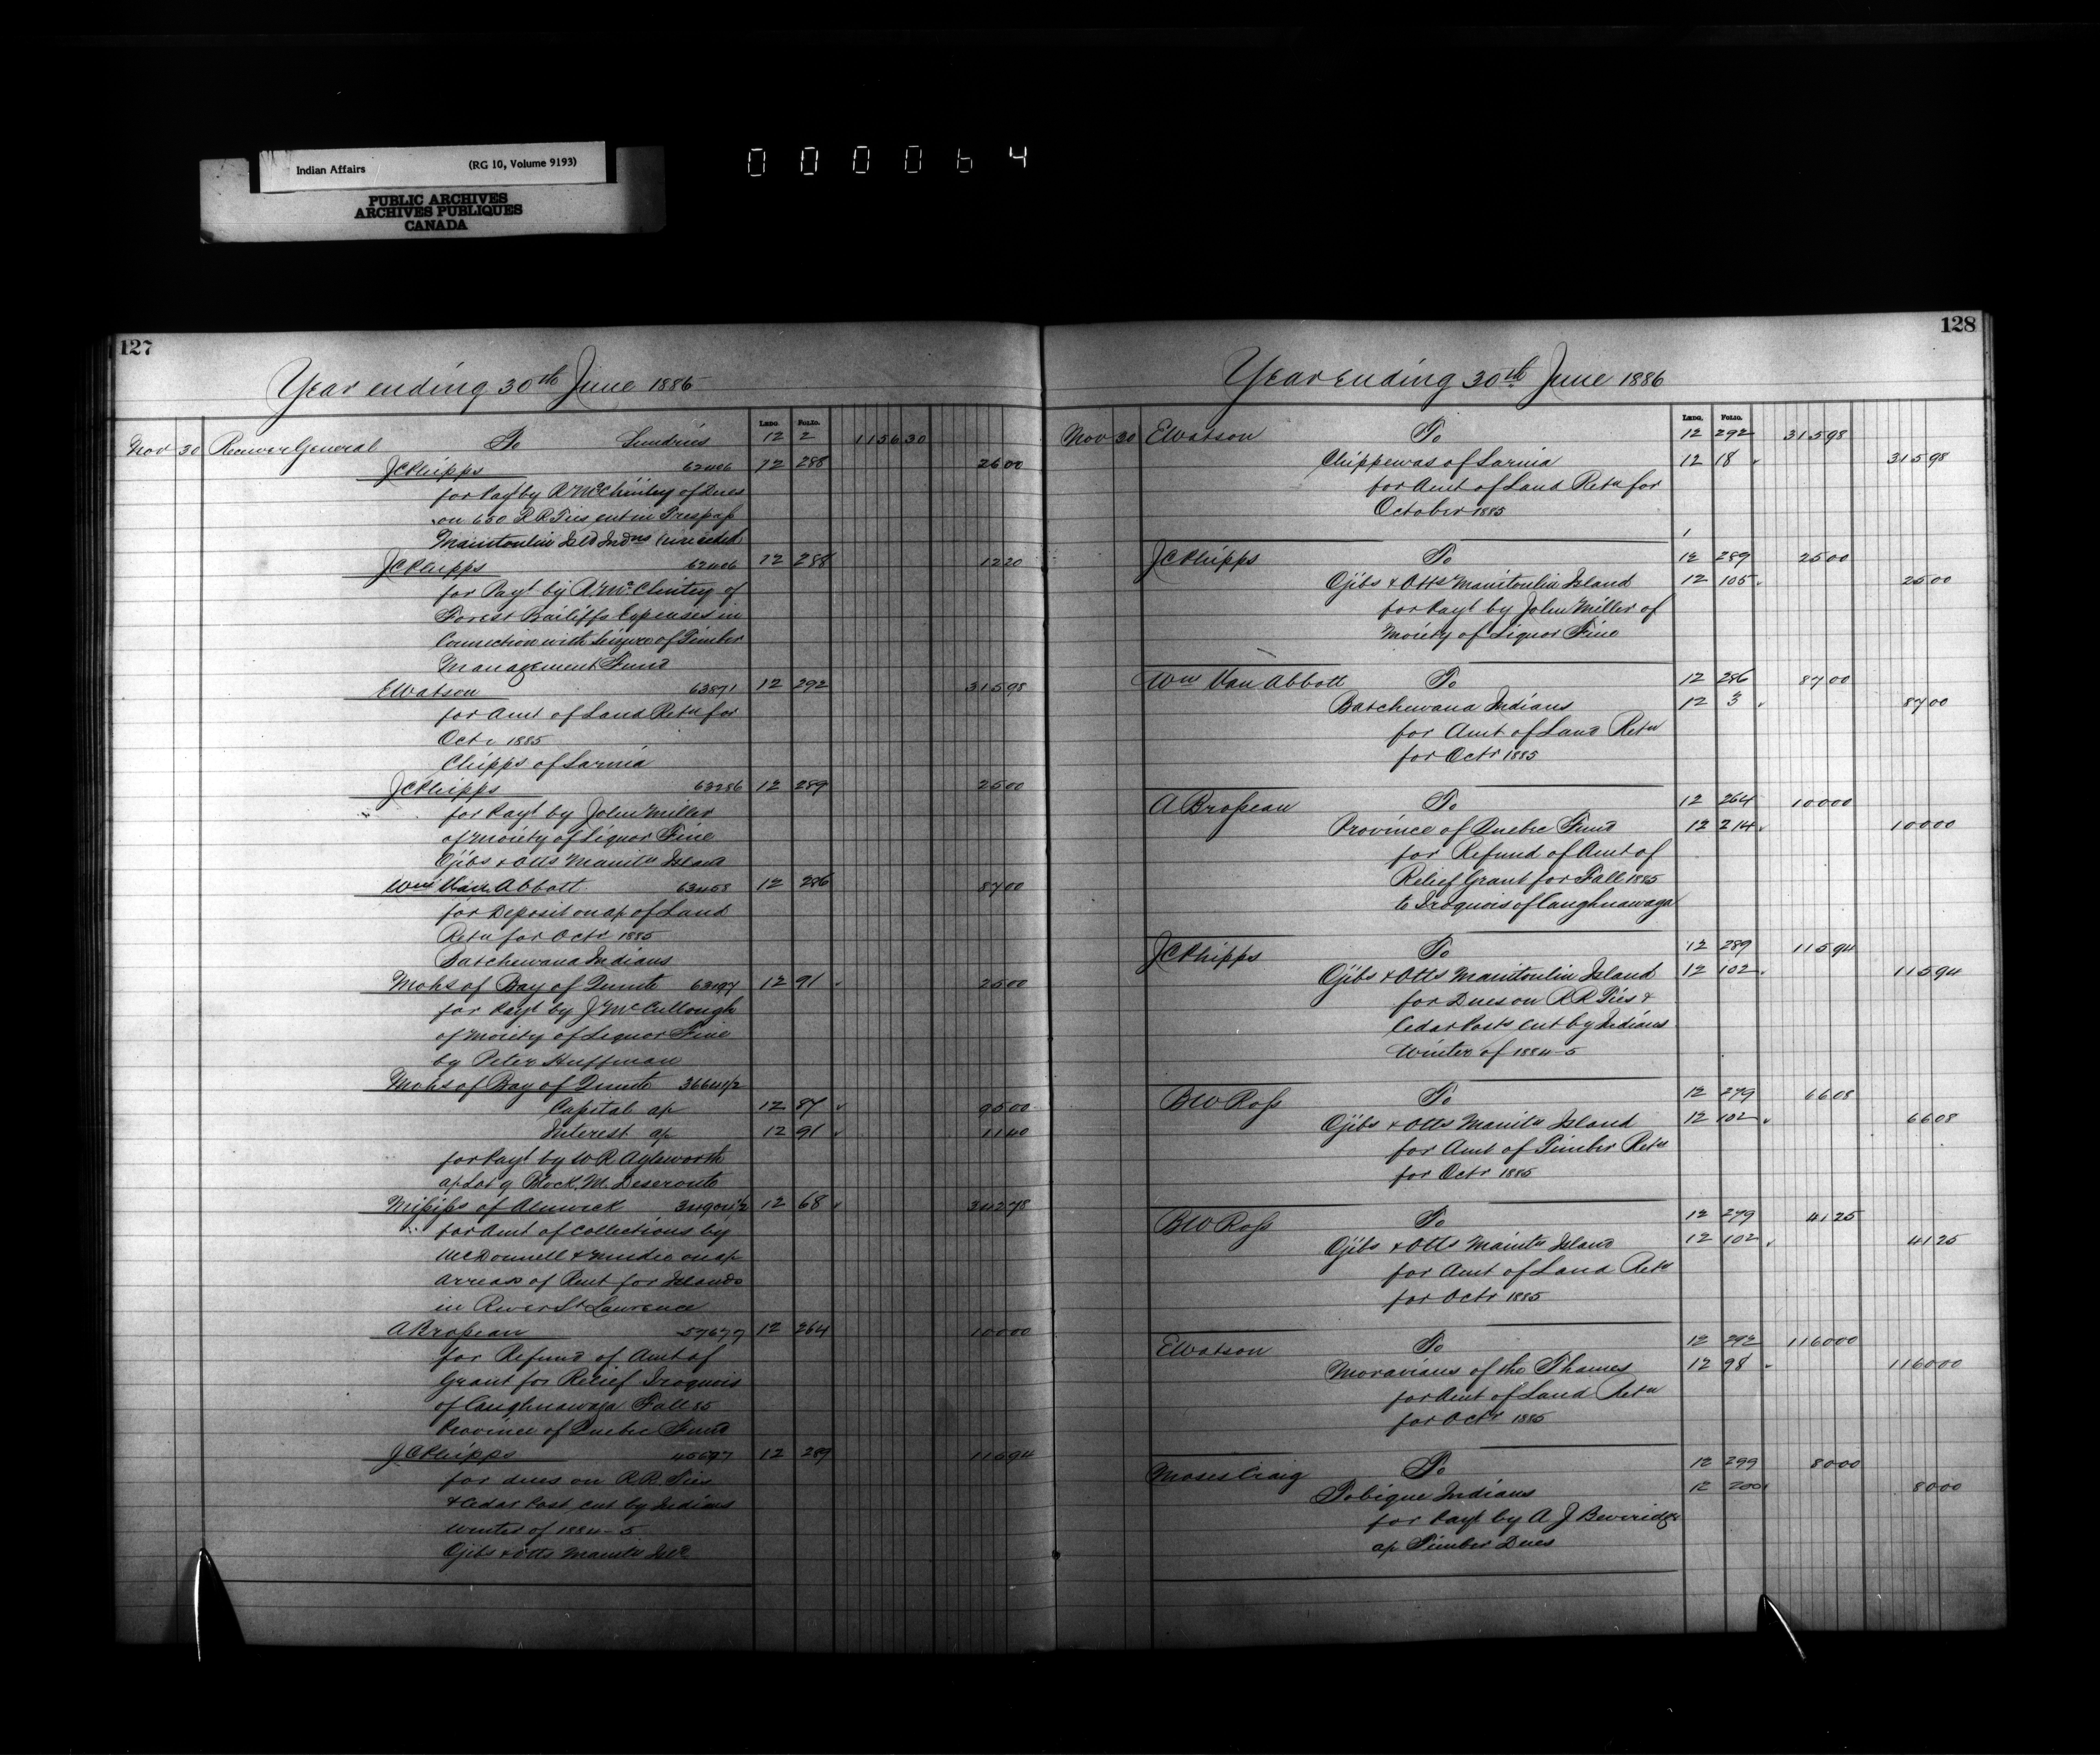 Indian Affairs (RG 10, Volume 9193)
PUBLIC ARCHIVES
ARCHIVES PUBLIQUES
CANADA
000064
127
Year ending 30th June 1886
Ledg. Folio.
Nov 30 Receiver General To Sundries 12 2 1156.30
J C Phipps 62406 12 288 26 00
for Payt by A McChintey of Dues
on 650 R R Ties cut in Trespass
Manitoulin Isld Indns Unceded
J C Phipps 62406 12 288 12 20
for Payt by A McClintey of
Forest Bailiffs Expenses in
Connection with Seizure of Timber
Management Fund
E Watson 63871 12 292 315 98
for Amt of Land Retn for
Octr 1885
Chipps of Sarnia
J C Phipps 63286 12 289 25 00
for Payt by John Miller
of Moiety of Liquor Fine
Ojibs & Otts Manitn Island
Wm Van Abbott 63458 12 286 87 00
for Deposit on a/c of Land
Retn for Octr 1885
Batchewana Indians
Mohs of Bay of Quinte 63197 12 91 25 00
for Payt by J McCullough
of Moiety of Liquor Fine
by Peter Huffman
Mohs of Bay of Quinte 36641/2
Capital a/c 12 87 95 00
Interest a/c 12 91 11 40
for Payt by W R Aylsworth
a/c Lot 9 Block M. Deseronto
Mississ of Alnwick 34904 1/2 12 68 342 78
for Amt of Collections by
McDonnell & Mudie on a/c
Arrears of Rent for Islands
in River St Lawrence
A Brosseau 57677 12 264 100 00
for Refund of Amt of
Grant for Relief Iroquois
of Caughnawaga Fall 85
Province of Quebec Fund
J C Phipps 45697 12 289 115 94
for dues on R.R. Ties
& Cedar Post cut by Indians
Winter of 1884-5
Ojibs & Otts Manitn Isld
128
Year ending 30th June 1886
Ledg. Folio.
Nov 30 E Watson To 12 292 315 98
Chippewas of Sarnia 12 18 315 98
for Amt of Land Retn for
October 1885
J C Phipps To 12 289 25 00
Ojibs & Otts Manitoulin Island 12 105 25 00
for Payt by John Miller of
Moiety of Liquor Fine
Wm Van Abbott To 12 286 87 00
Batchewana Indians 12 3 87 00
for Amt of Land Retn
for Octr 1885
A Brosseau To 12 264 100 00
Province of Quebec Fund 12 214 100 00
for Refund of Amt of
Relief Grant for Fall 1885
to Iroquois of Caughnawaga
J C Phipps To 12 289 115 94
Ojibs & Otts Manitoulin Island 12 102 115 94
for Dues on R R Ties &
Cedar Posts cut by Indians
Winter of 1884-5
B W Ross To 12 279 66 08
Ojibs & Otts Manitn Island 12 102 66 08
for Amt of Timber Retn
for Octr 1885
B W Ross To 12 279 41 25
Ojibs & Otts Manitn Island 12 102 41 25
for Amt of Land Retn
for Octr 1885
E Watson To 12 292 1160 00
Moravians of the Thames 12 98 1160 00
for Amt of Land Retn
for Octr 1885
Moses Craig To 12 299 80 00
Tobique Indians 12 200 80 00
for Payt by A J Beveridge
a/c Timber Dues